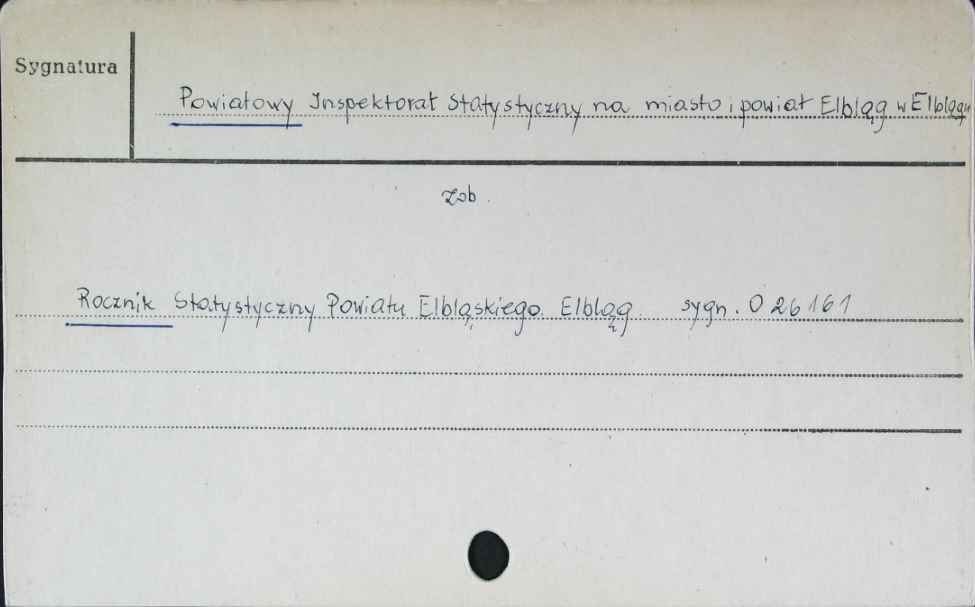 Sygnatura
Powiatowy Inspektorat Statystyczny na miasto i powiat Elbląg w Elblągu
Zob.
Rocznik Statystyczny Powiatu Elbląskiego. Elbląg. sygn. O 26161